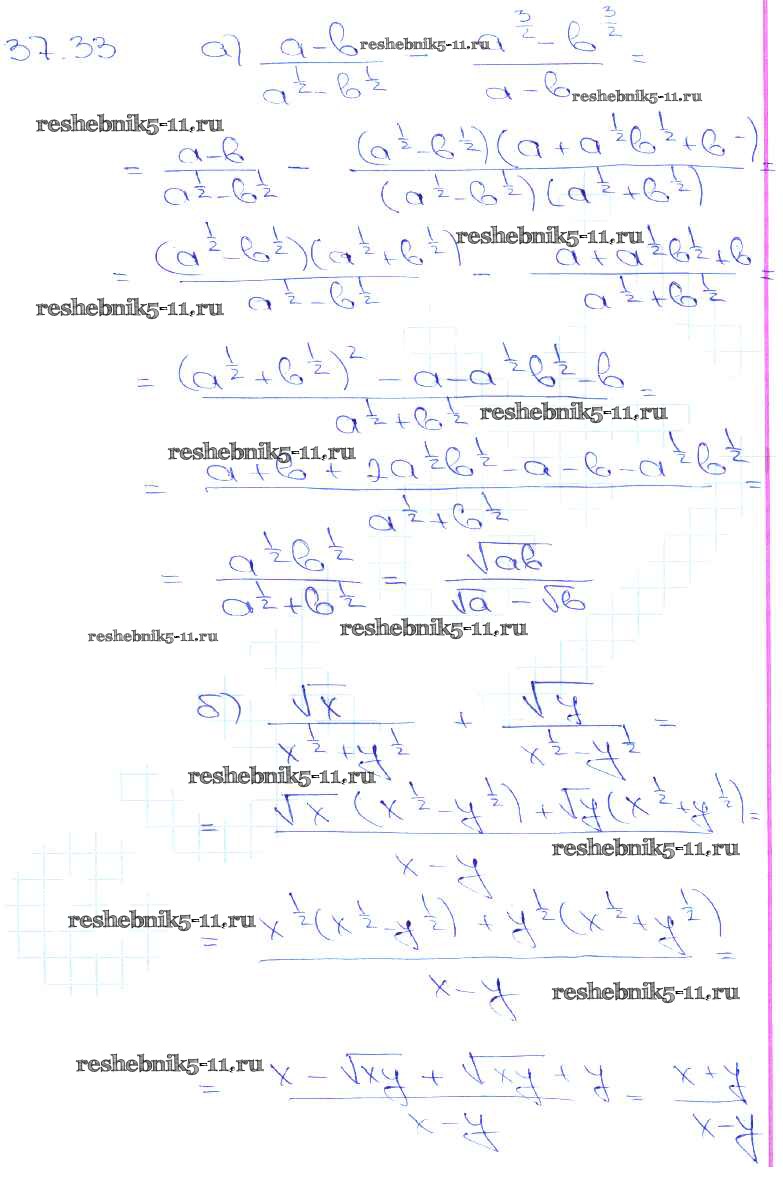 37.33 а) (a-b)/(a^(1/2) - b^(1/2)) - (a^(3/2) - b^(3/2))/(a-b) =
reshebnik5-11.ru
reshebnik5-11.ru
reshebnik5-11.ru
= (a-b)/(a^(1/2) - b^(1/2)) - ((a^(1/2) - b^(1/2))(a + a^(1/2)b^(1/2) + b))/((a^(1/2) - b^(1/2))(a^(1/2) + b^(1/2))) =
reshebnik5-11.ru
= ((a^(1/2) - b^(1/2))(a^(1/2) + b^(1/2)))/(a^(1/2) - b^(1/2)) - (a + a^(1/2)b^(1/2) + b)/(a^(1/2) + b^(1/2)) =
reshebnik5-11.ru
= ((a^(1/2) + b^(1/2))^2 - a - a^(1/2)b^(1/2) - b)/(a^(1/2) + b^(1/2)) =
reshebnik5-11.ru
reshebnik5-11.ru
= (a + b + 2a^(1/2)b^(1/2) - a - b - a^(1/2)b^(1/2))/(a^(1/2) + b^(1/2)) =
= (a^(1/2)b^(1/2))/(a^(1/2) + b^(1/2)) = √(ab)/(√a - √b)
reshebnik5-11.ru
reshebnik5-11.ru
б) √x/(x^(1/2) + y^(1/2)) + √y/(x^(1/2) - y^(1/2)) =
reshebnik5-11.ru
= (√x (x^(1/2) - y^(1/2)) + √y (x^(1/2) + y^(1/2)))/(x - y) =
reshebnik5-11.ru
reshebnik5-11.ru
= (x^(1/2)(x^(1/2) - y^(1/2)) + y^(1/2)(x^(1/2) + y^(1/2)))/(x - y) =
reshebnik5-11.ru
reshebnik5-11.ru
= (x - √(xy) + √(xy) + y)/(x - y) = (x + y)/(x - y)